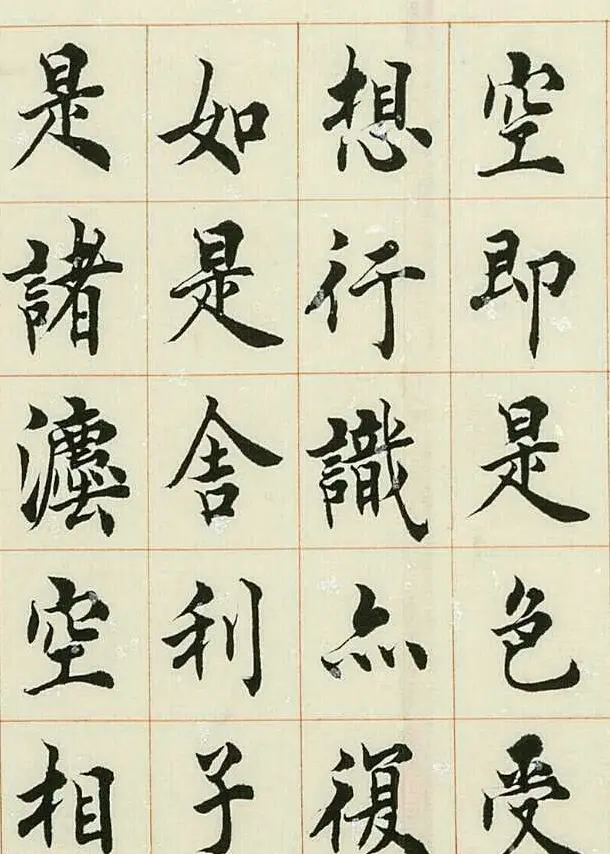 空即是色受
想行識亦復
如是舍利子
是諸灋空相